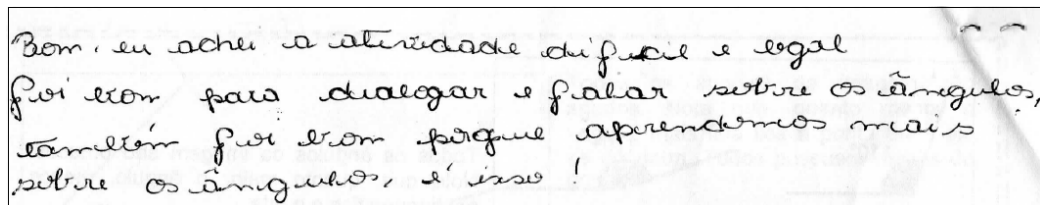 Bom, eu achei a atividade dificil e legal
foi bom para dialogar e falar sobre os ângulos,
também foi bom porque aprendemos mais
sobre os ângulos, é isso!